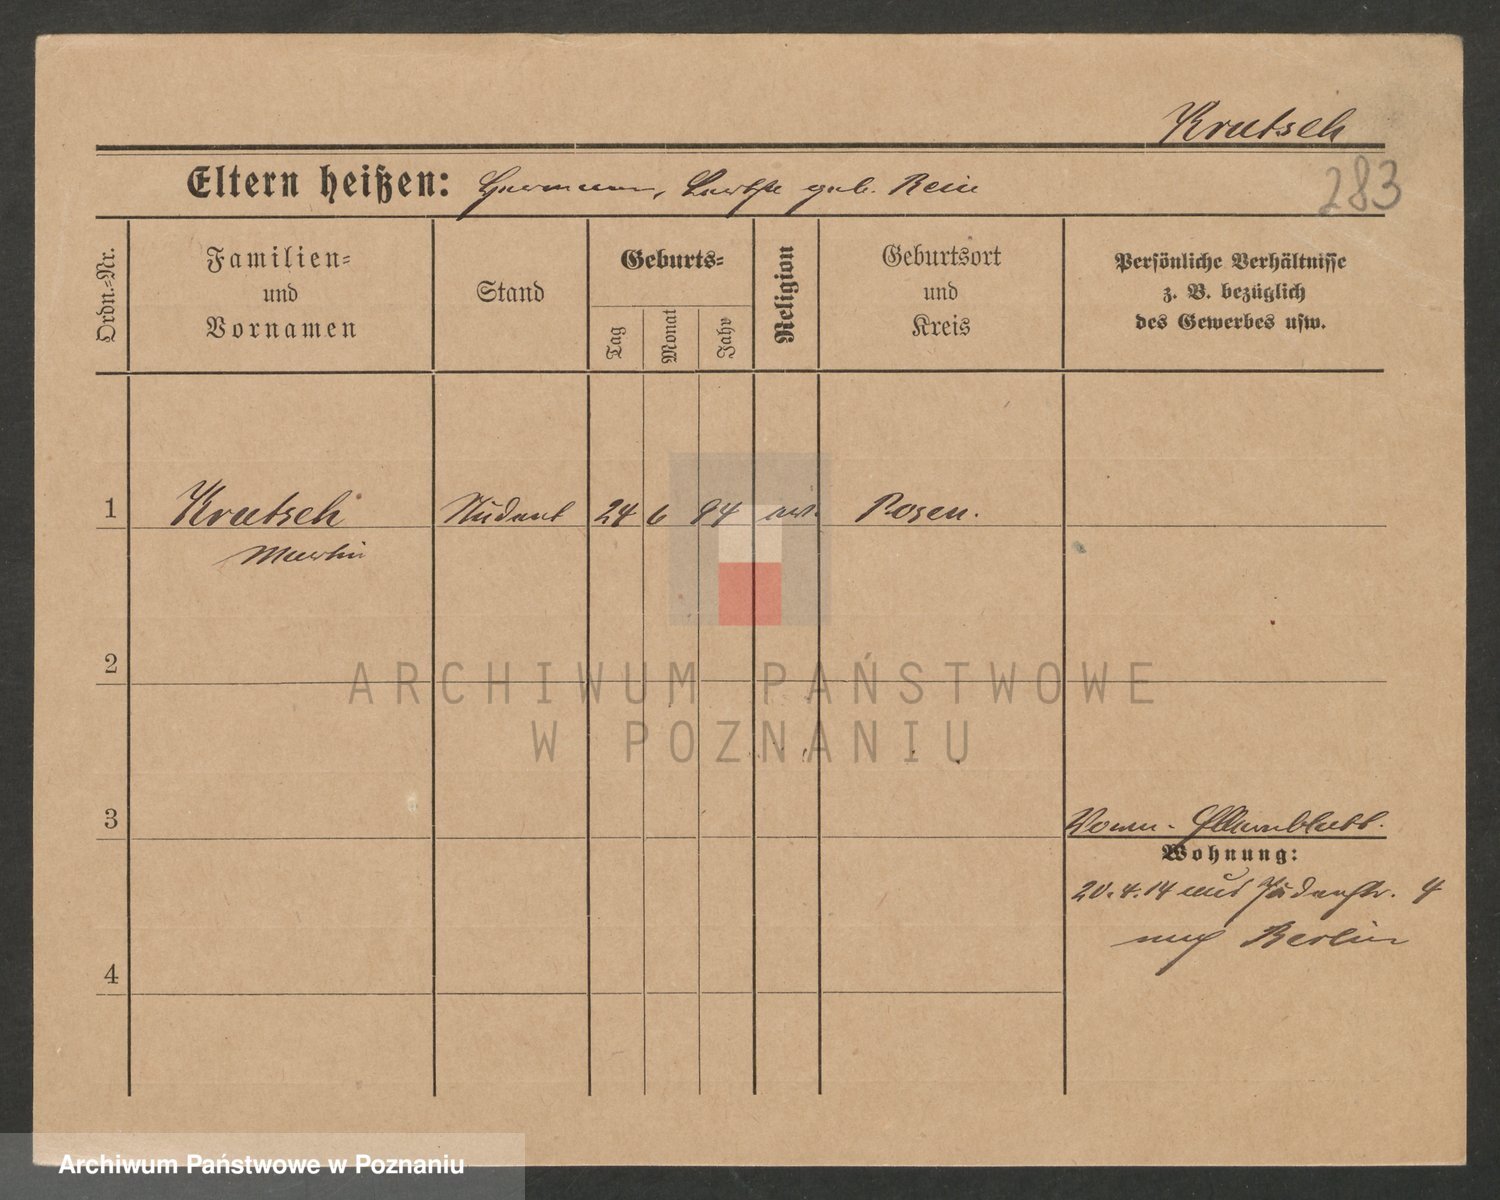 Krutsch
Eltern heißen: Hermann, geb. Rein
283
Ordn.-Nr.
Familien-
und
Vornamen
Stand
Geburts-
Tag
Monat
Jahr
Religion
Geburtsort
und
Kreis
Persönliche Verhältnisse
z. B. bezüglich
des Gewerbes usw.
1 Krutsch Student 24 6 94 Posen.
Martin
2
ARCHIWUM PAŃSTWOWE
W POZNANIU
3
Wohnung:
20.4.14 aus Judenstr. 4
nach Berlin
4
Archiwum Państwowe w Poznaniu